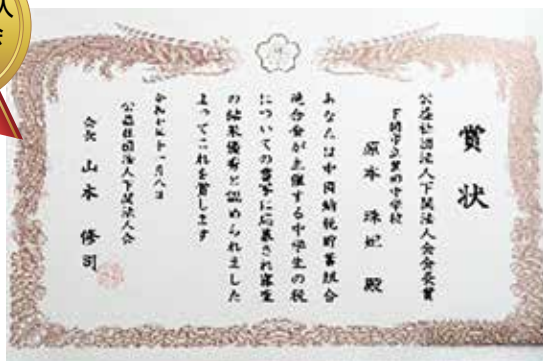 人
会
賞状
公益社団法人下関法人会会長賞
下関市立 中学校
原本 珠妃 殿
あなたは中国納税貯蓄組合
連合会が主催する中学生の税
についての書写に応募され審査
の結果優秀と認められました
よってこれを賞します
令和 年十一月八日
公益社団法人下関法人会
会長 山本 修司